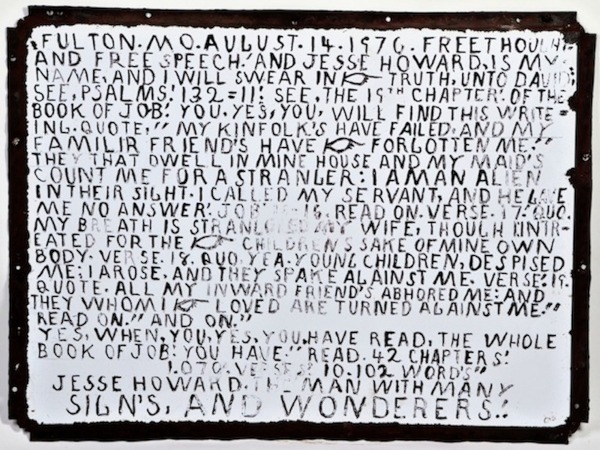 FULTON. MO. AUGUST. 14. 1976. FREETHOUGHT
AND FREE SPEECH.' AND JESSE HOWARD. IS MY
NAME, AND I WILL SWEAR IN TRUTH, UNTO DAVID,
SEE, PSALMS.' 132=11.' SEE, THE 19TH CHAPTER.' OF THE
BOOK OF JOB.' YOU, YES, YOU, WILL FIND THIS WRITE=
ING. QUOTE," MY KINFOLK'S HAVE FAILED, AND MY
FAMILIR FRIEND'S HAVE FORGOTTEN ME."
THEY THAT DWELL IN MINE HOUSE, AND MY MAID'S
COUNT ME FOR A STRANGER: I AM AN ALIEN
IN THEIR SIGHT. I CALLED MY SERVANT, AND HE GAVE
ME NO ANSWER.' JOB 19=16. READ ON. VERSE. 17. QUO.
MY BREATH IS STRANGE TO MY WIFE, THOUGH I INTR=
EATED FOR THE CHILDREN'S SAKE OF MINE OWN
BODY. VERSE. 18. QUO. YEA. YOUNG CHILDREN, DESPISED
ME: I AROSE, AND THEY SPAKE AGAINST ME. VERSE. 19.
QUOTE. ALL MY INWARD FRIEND'S ABHORED ME: AND
THEY WHOM I LOVED ARE TURNED AGAINST ME."
READ ON." AND ON."
YES, WHEN, YOU, YES, YOU, HAVE READ, THE WHOLE
BOOK OF JOB.' YOU HAVE." READ. 42 CHAPTERS.'
1.070. VERSES.' 10.102 WORD'S"
JESSE HOWARD. THE MAN WITH MANY
SIGN'S, AND WONDERERS.'